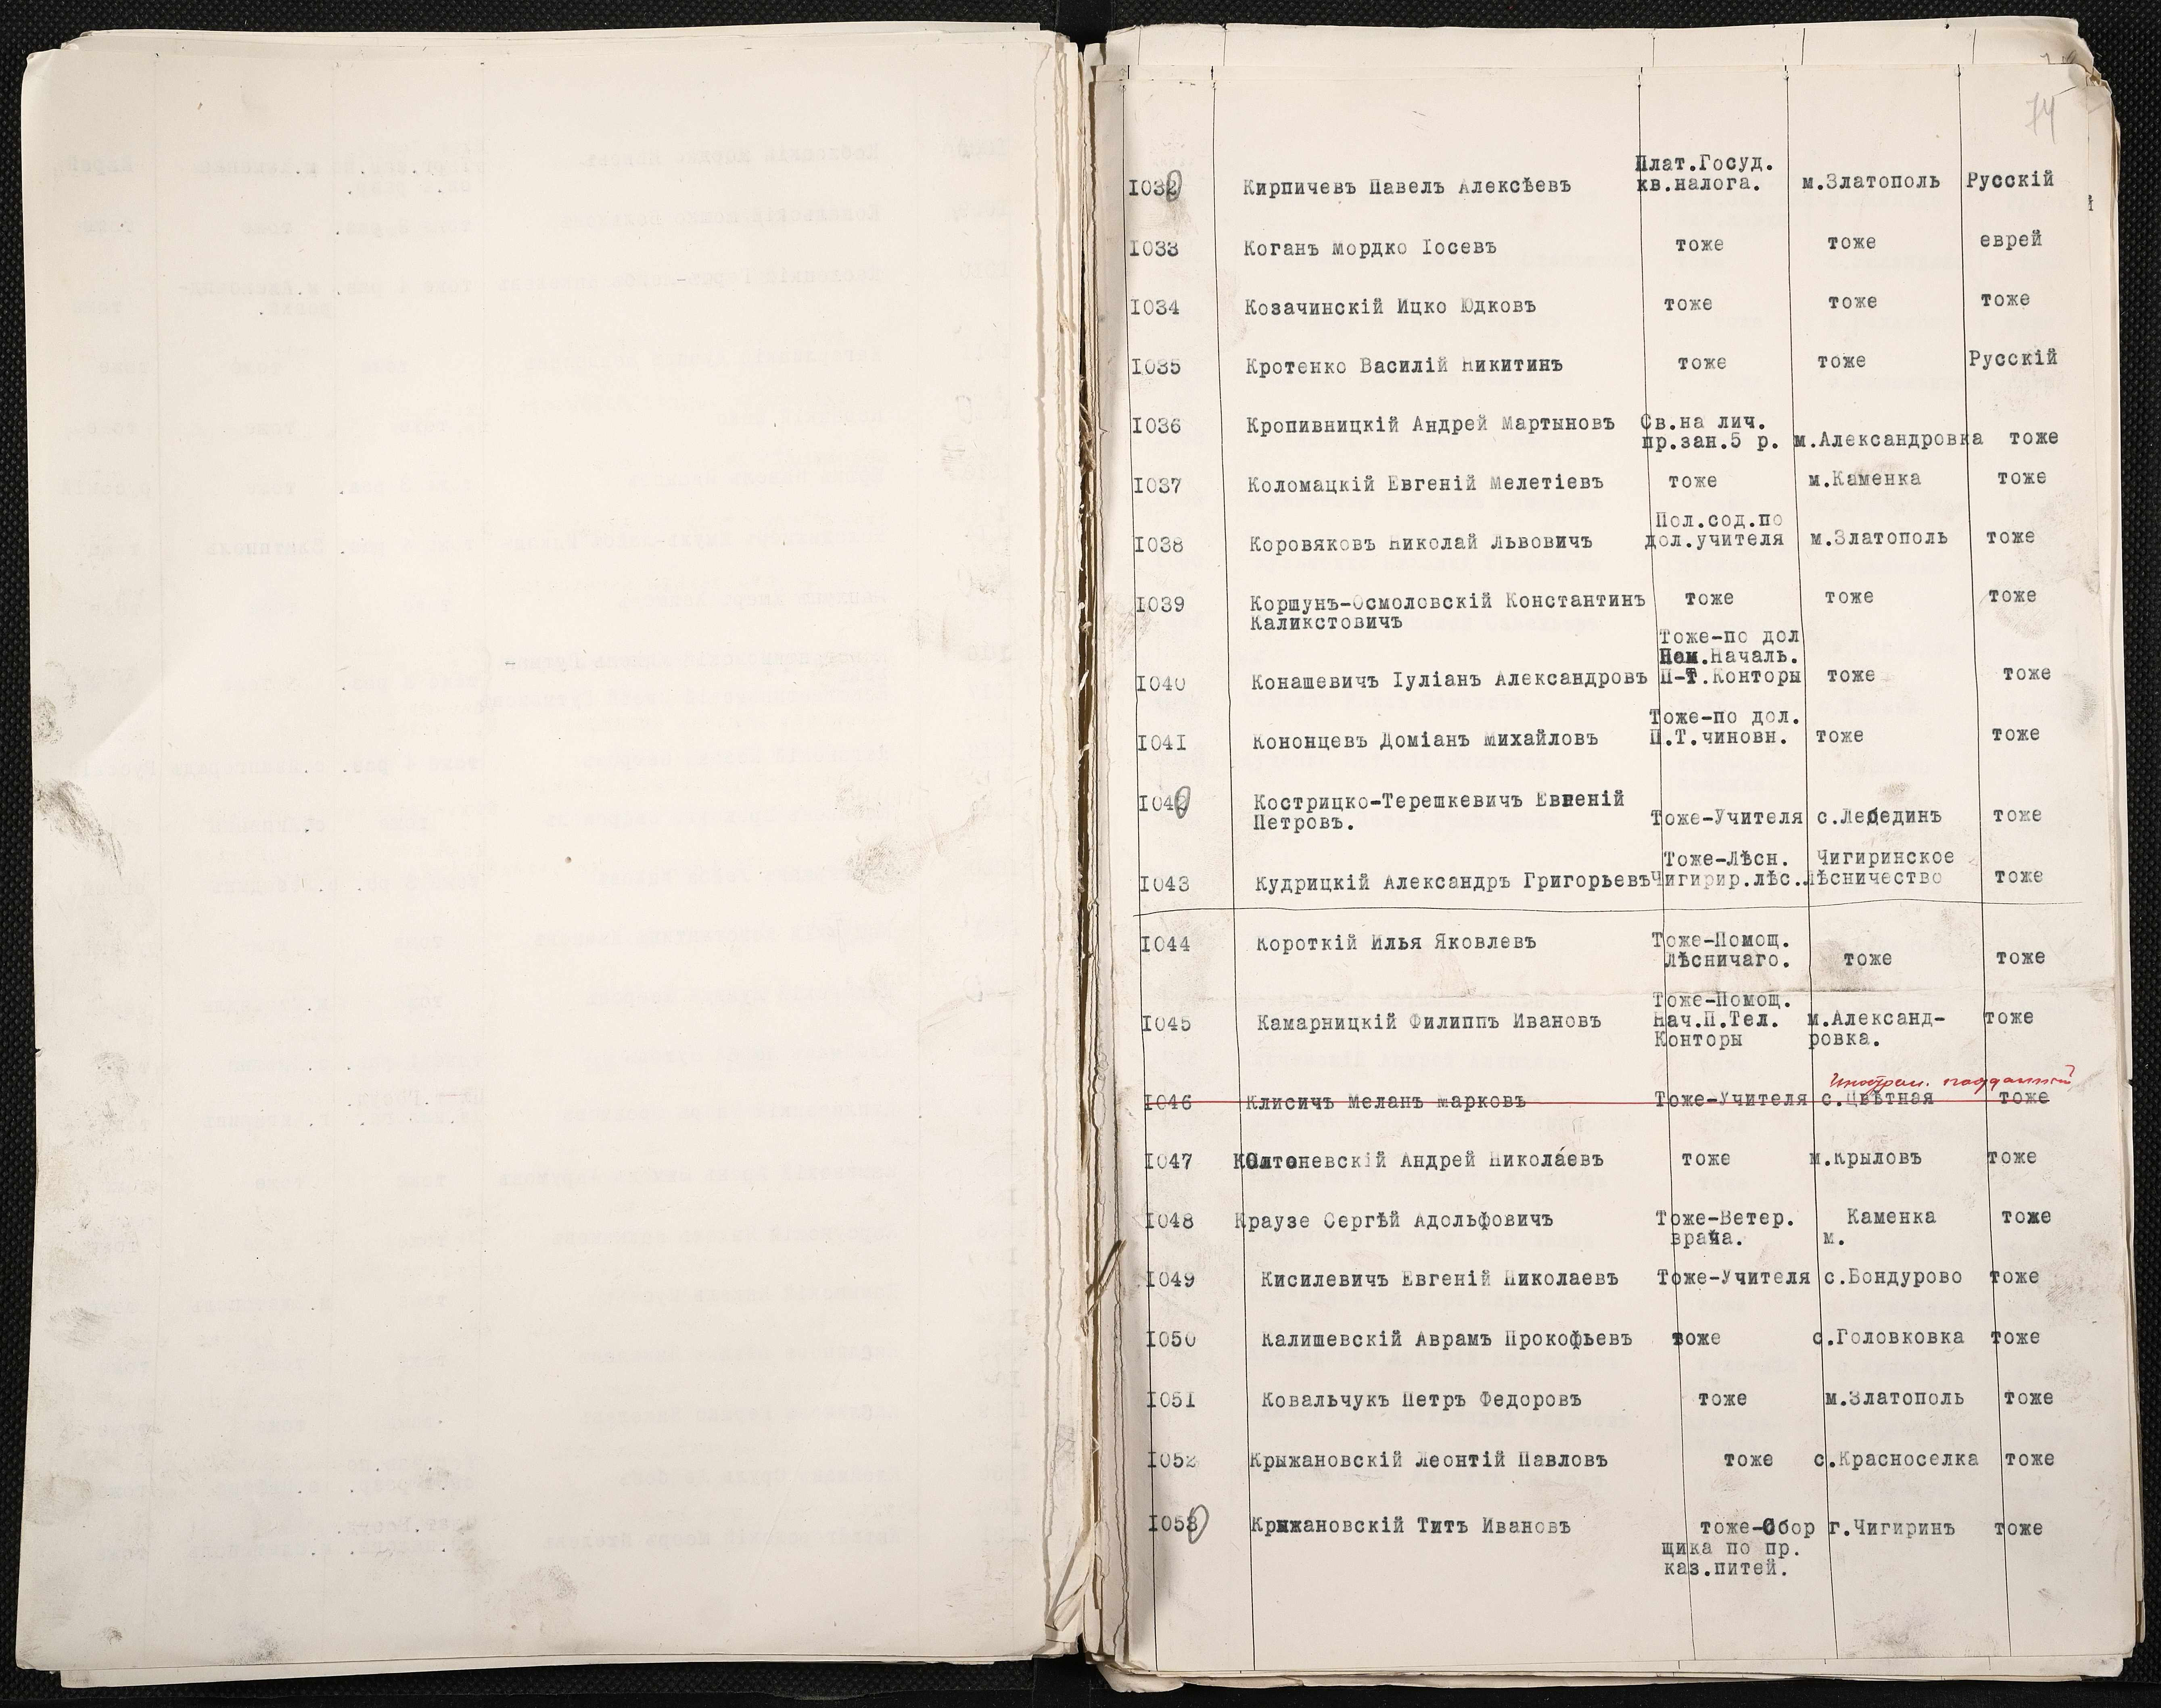 74
Плат.Госуд.
I032 Кирпичевъ Павелъ Алексѣевъ кв.налога. м.Златополь Русскій
I033 Коганъ Мордко Іосевъ тоже тоже еврей
I034 Козачинскій Ицко Юдковъ тоже тоже тоже
I035 Кротенко Василій Никитинъ тоже тоже Русскій
I036 Кропивницкій Андрей Мартыновъ Св.на лич.
пр.зан.5 р. м.Александровка тоже
I037 Коломацкій Евгеній Мелетіевъ тоже м.Каменка тоже
Пол.сод.по
I038 Коровяковъ Николай Львовичъ дол.учителя м.Златополь тоже
I039 Коршунъ-Осмоловскій Константинъ тоже тоже тоже
Каликстовичъ
Тоже-по дол
Пом.Началь.
I040 Конашевичъ Іуліанъ Александровъ П-Т.Конторы тоже тоже
Тоже-по дол.
I041 Кононцевъ Доміанъ Михайловъ П.Т.чиновн. тоже тоже
I042 Кострицко-Терешкевичъ Евгеній
Петровъ. Тоже-Учителя с.Лебединъ тоже
Тоже-Лѣсн. Чигиринское
I043 Кудрицкій Александръ Григорьевъ Чигирир.лѣс. лѣсничество тоже
I044 Короткій Илья Яковлевъ Тоже-Помощ.
Лѣсничаго. тоже тоже
Тоже-Помощ.
I045 Камарницкій Филиппъ Ивановъ Нач.П.Тел. м.Александ- тоже
Конторы ровка.
Иностран. подданный
I046 Клисичъ Меланъ Марковъ Тоже-Учителя с.Цвѣтная тоже
I047 Колтоневскій Андрей Николаевъ тоже м.Крыловъ тоже
I048 Краузе Сергѣй Адольфовичъ Тоже-Ветер. Каменка тоже
врача. м.
I049 Кисилевичъ Евгеній Николаевъ Тоже-Учителя с.Бондурово тоже
I050 Калишевскій Аврамъ Прокофьевъ тоже с.Головковка тоже
I051 Ковальчукъ Петръ Федоровъ тоже м.Златополь тоже
I052 Крыжановскій Леонтій Павловъ тоже с.Красноселка тоже
I053 Крыжановскій Титъ Ивановъ тоже-Сбор г.Чигиринъ тоже
щика по пр.
каз.питей.